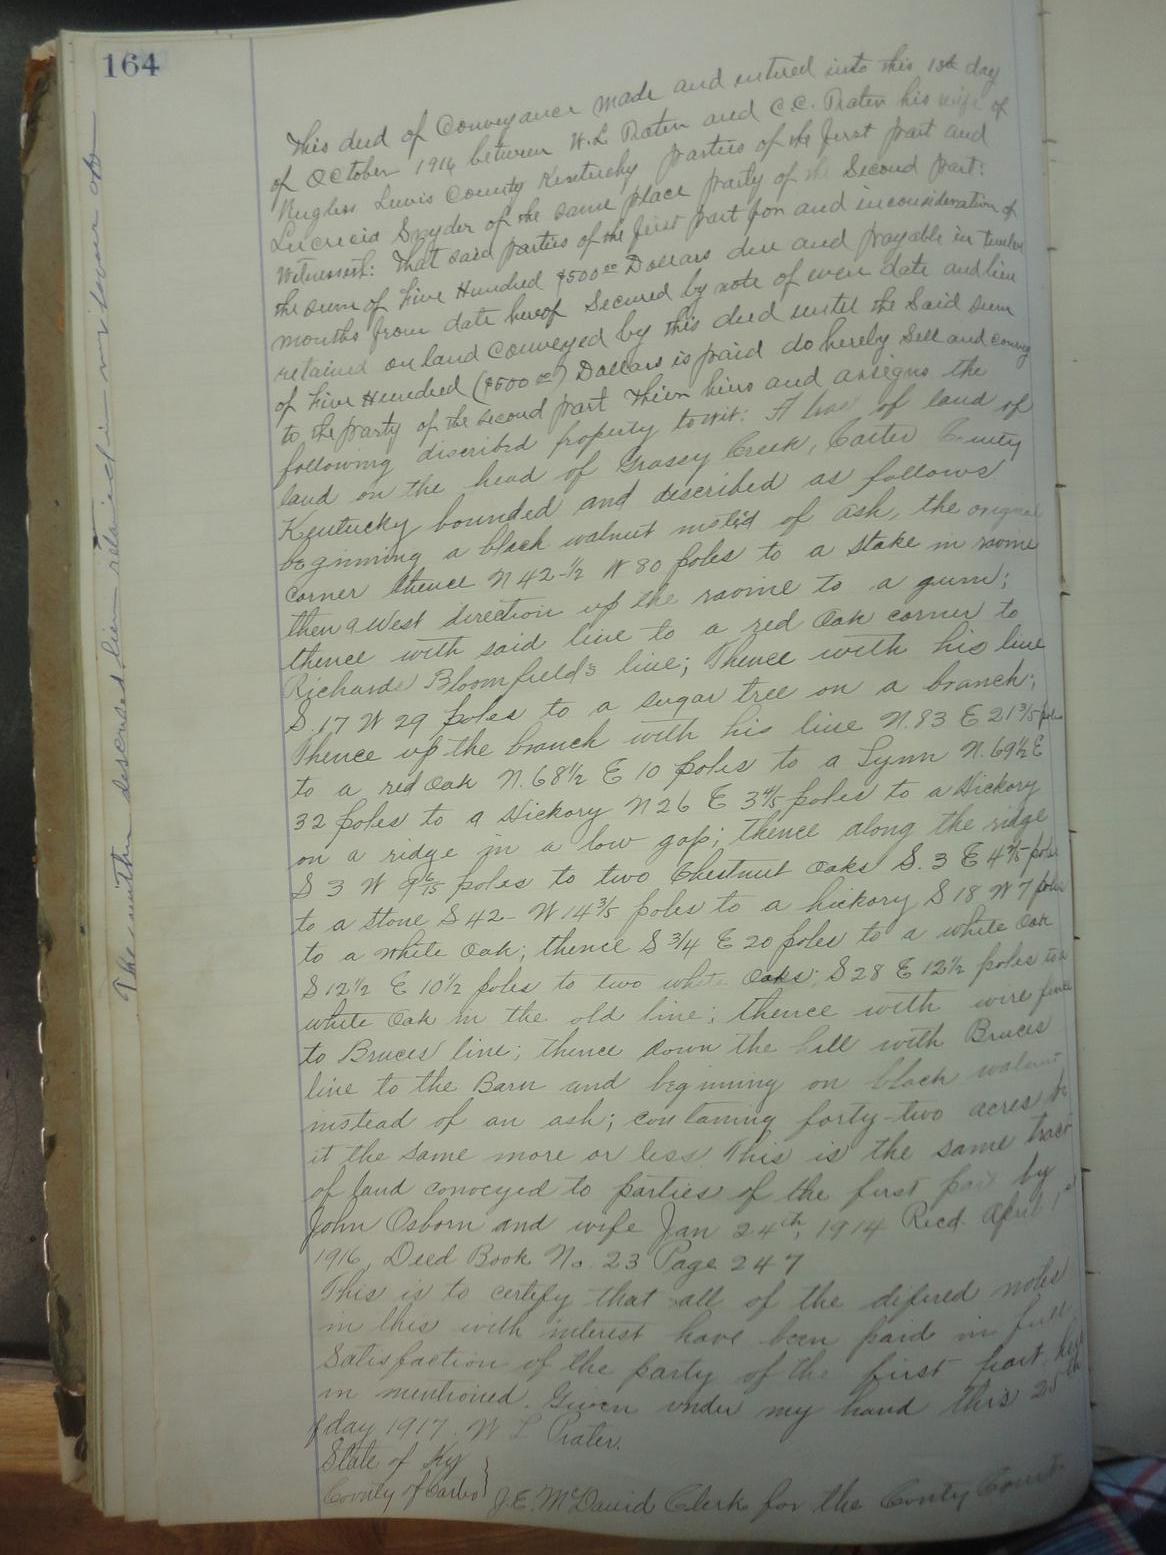 164
This deed of Conveyance made and entered into this 13th day
of October 1916 between W.L Prater and C.C. Prater his wife of
Lewis County Kentucky parties of the first part and
Lucrecia Snyder of the same place party of the Second part:
Witnesseth: That said parties of the first part for and inconsideration of
the sum of Five Hundred $500.00 Dollars due and payable in twelve
months from date hereof Secured by note of even date and lien
retained on land Conveyed by this deed until the Said sum
of Five Hundred ($500.00) Dollars is paid do hereby Sell and convey
to the party of the second part Their heirs and assigns the
following discribed property towit: A of land of
land on the head of Grasey Creek, Carter County
Kentucky bounded and described as follows
beginning a black walnut insted of ash, the original
corner thence N 42-½ W 80 poles to a stake in
then a West direction up the to a gum;
thence with said line to a red Oak corner to
Richards Bloomfield's line; Thence with his line
S 17 W 29 poles to a sugar tree on a branch;
Thence up the branch with his line N. 83 E 21 3/5 poles
to a red Oak N. 68½ E 10 poles to a Lynn N. 69½ E
32 poles to a Hickory N 26 E 3 4/5 poles to a Hickory
on a ridge in a low gap; thence along the ridge
S 3 W poles to two Chestnut Oaks S. 3 E 4 2/5 poles
to a stone S 42- W 14 3/5 poles to a hickory S 18 W 7 poles
to a white Oak; thence S 3/4 E 20 poles to a white Oak
S 12½ E 10½ poles to two white Oaks; S 28 E 12½ poles to a
white Oak in the old line; thence with wire fence
to Bruces line; thence down the hill with Bruces
line to the Barn and beginning on black walnut
instead of an ash; containing forty-two acres be
it the same more or less. This is the same tract
of land conveyed to parties of the first part by
John Osborn and wife Jan 24th, 1914 Recd. April 1st
1916, Deed Book No. 23 Page 247
This is to certify that all of the defered notes
in this with interest have been paid in full
Satisfaction of the party of the first part here
in mentioned. Given under my hand this 25th
day 1917. W L Prater.
State of Ky
County of Carter } J.E. McDavid Clerk for the County Court
The within descrased lien retained in in favor of